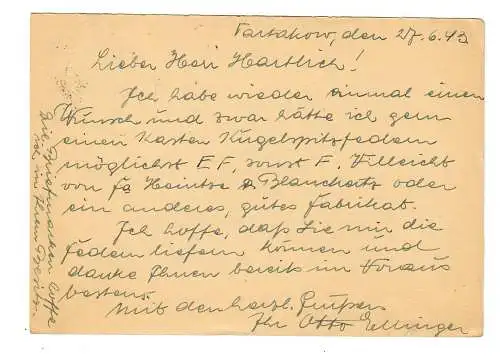 Tartakow, den 27.6.43
Lieber Herr Hartlich!
Ich habe wieder einmal einen
Wunsch und zwar hätte ich gern
einen Kasten Kugelspitzfedern
möglichst EF, sonst F. Vielleicht
von Fa Heintze & Blanckertz oder
ein anderes, gutes Fabrikat.
Ich hoffe, daß Sie mir die
Federn liefern können und
danke Ihnen bereits im Voraus
bestens.
Mit den herzl. Grüßen
Ihr Otto Ellinger
Die Briefmarken hoffe
ich in Ihrem Besitz.